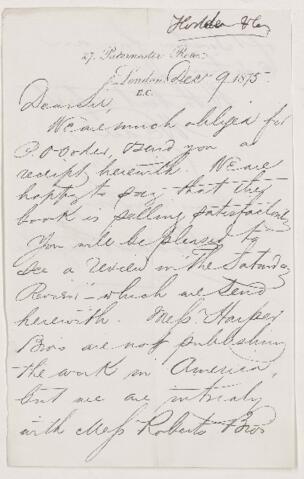 Hodder & Co
27, Paternoster Row
London Dec 9 1875
E.C.
Dear Sir,
We are much obliged for
P.O Order, & send you a
receipt herewith. We are
happy to say that they
book is selling satisfactorily
You will be pleased to
see a review in the Saturday
Review - which we send
herewith. Messrs Harper
Bros are not publishing
the work in America,
but we are
with Messrs Roberts Bros